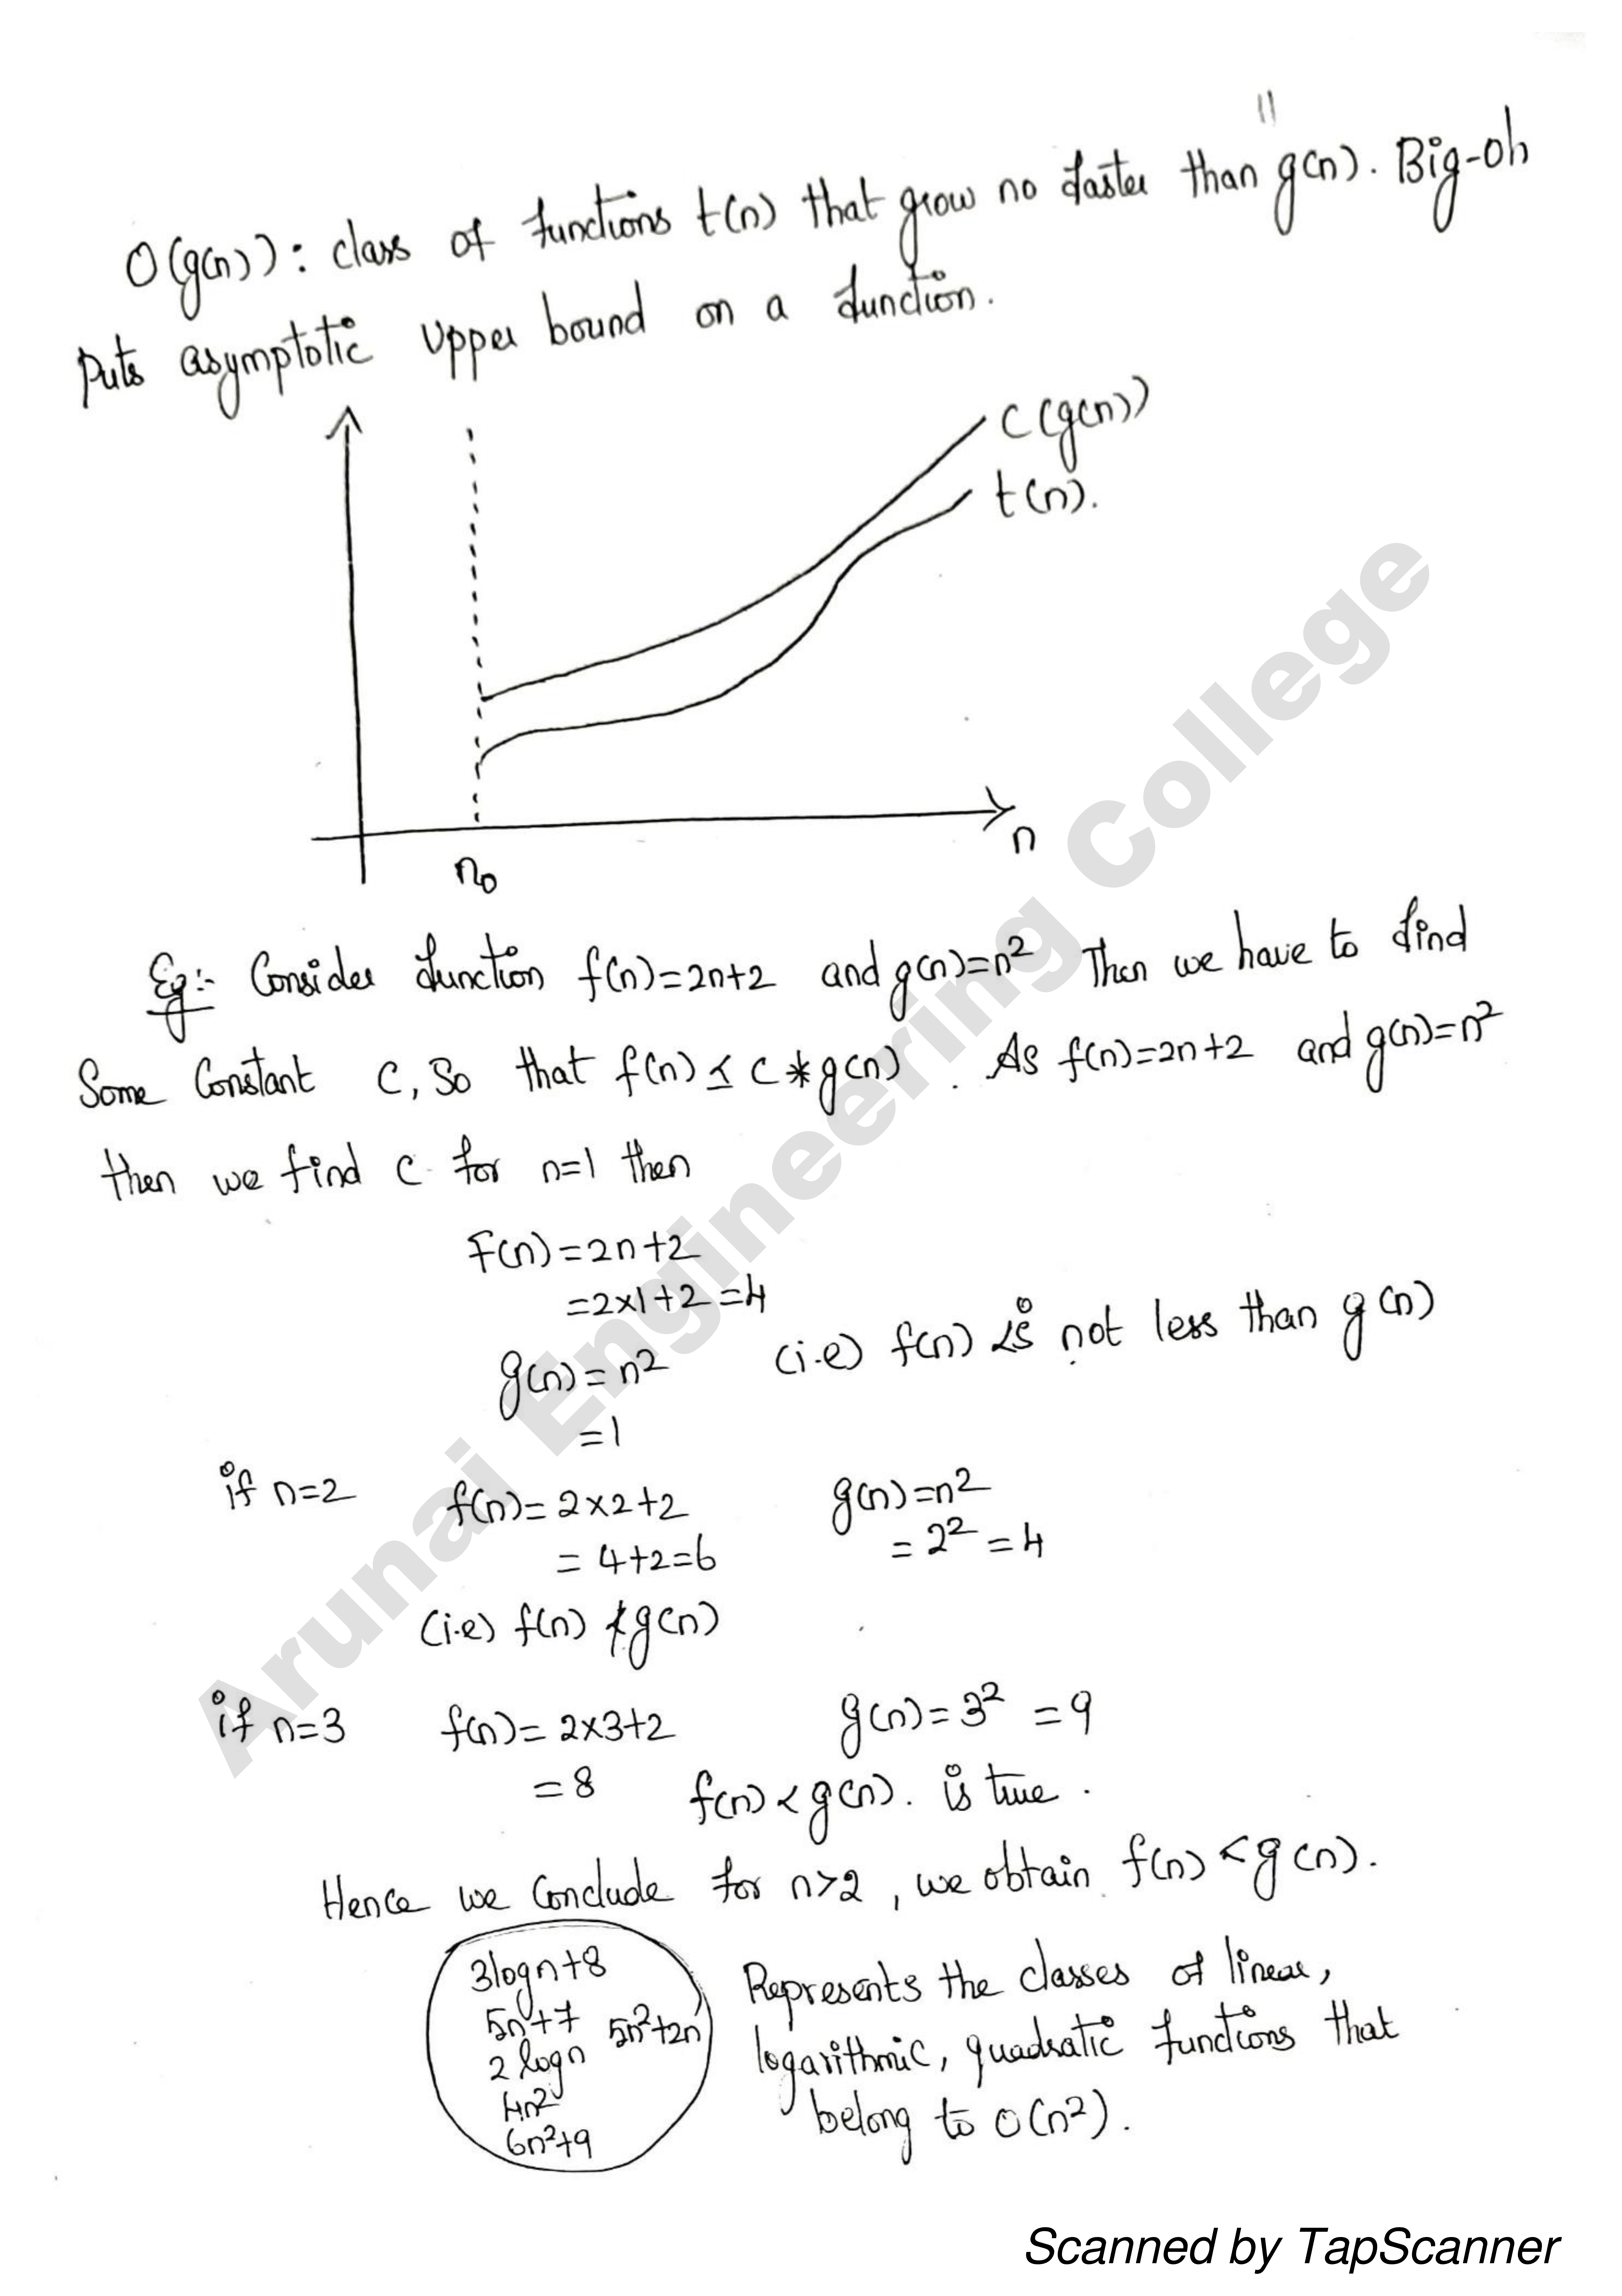 11
O(g(n)): class of functions t(n) that grow no faster than g(n). Big-oh
puts asymptotic upper bound on a function.
c(g(n))
t(n).
n
n₀
Eg:- Consider function f(n)=2n+2 and g(n)=n² Then we have to find
Some Constant c, So that f(n) ≤ c*g(n). As f(n)=2n+2 and g(n)=n²
then we find c for n=1 then
F(n)=2n+2
=2×1+2=4
(i.e) f(n) is not less than g(n)
g(n)=n²
=1
if n=2 f(n)=2×2+2 g(n)=n²
=4+2=6 =2²=4
(i.e) f(n) ≮ g(n)
if n=3 f(n)=2×3+2 g(n)=3² =9
=8 f(n)<g(n). is true.
Hence we conclude for n>2, we obtain f(n) < g(n).
3logn+8
5n+7 5n²+2n
2logn
4n²
6n²+9
Represents the classes of linear,
logarithmic, quadratic functions that
belong to O(n²).
Arunai Engineering College
Scanned by TapScanner